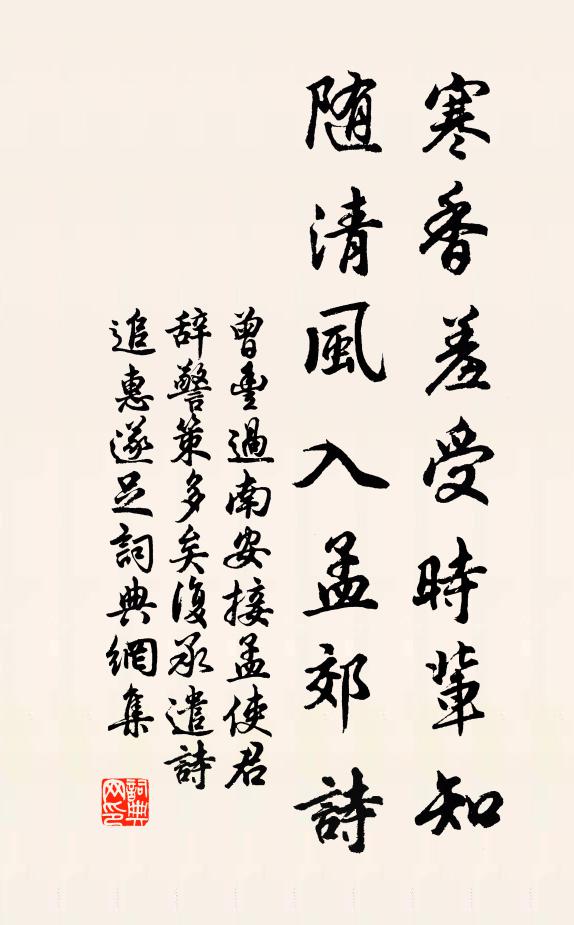 寒香羞受時輩知
随清風入孟郊詩
曾豐過南安接孟使君
辞警策多矣復承遣詩
追惠遂足詞典網集
詞典网印